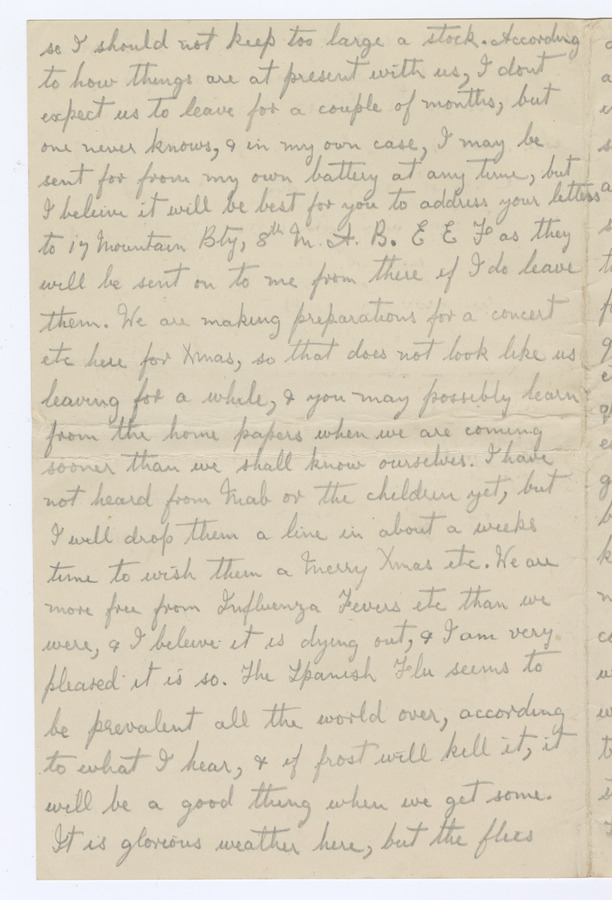 so I should not keep too large a stock. According
to how things are at present with us, I dont
expect us to leave for a couple of months, but
one never knows, & in my own case, I may be
sent for from my own battery at any time, but
I beleive it will be best for you to address your letters
to 17 Mountain Bty, 8th M. A. B. E E F as they
will be sent on to me from there if I do leave
them. We are making preparations for a concert
etc here for Xmas, so that does not look like us
leaving for a while, & you may possibly learn
from the home papers when we are coming
sooner than we shall know ourselves. I have
not heard from Mab or the children yet, but
I will drop them a line in about a weeks
time to wish them a Merry Xmas etc. We are
more free from Influenza Fevers etc than we
were, & I beleive it is dying out, & I am very
pleased it is so. The Spanish Flu seems to
be prevalent all the world over, according
to what I hear, & if frost will kill it, it
will be a good thing when we get some.
It is glorious weather here, but the flies